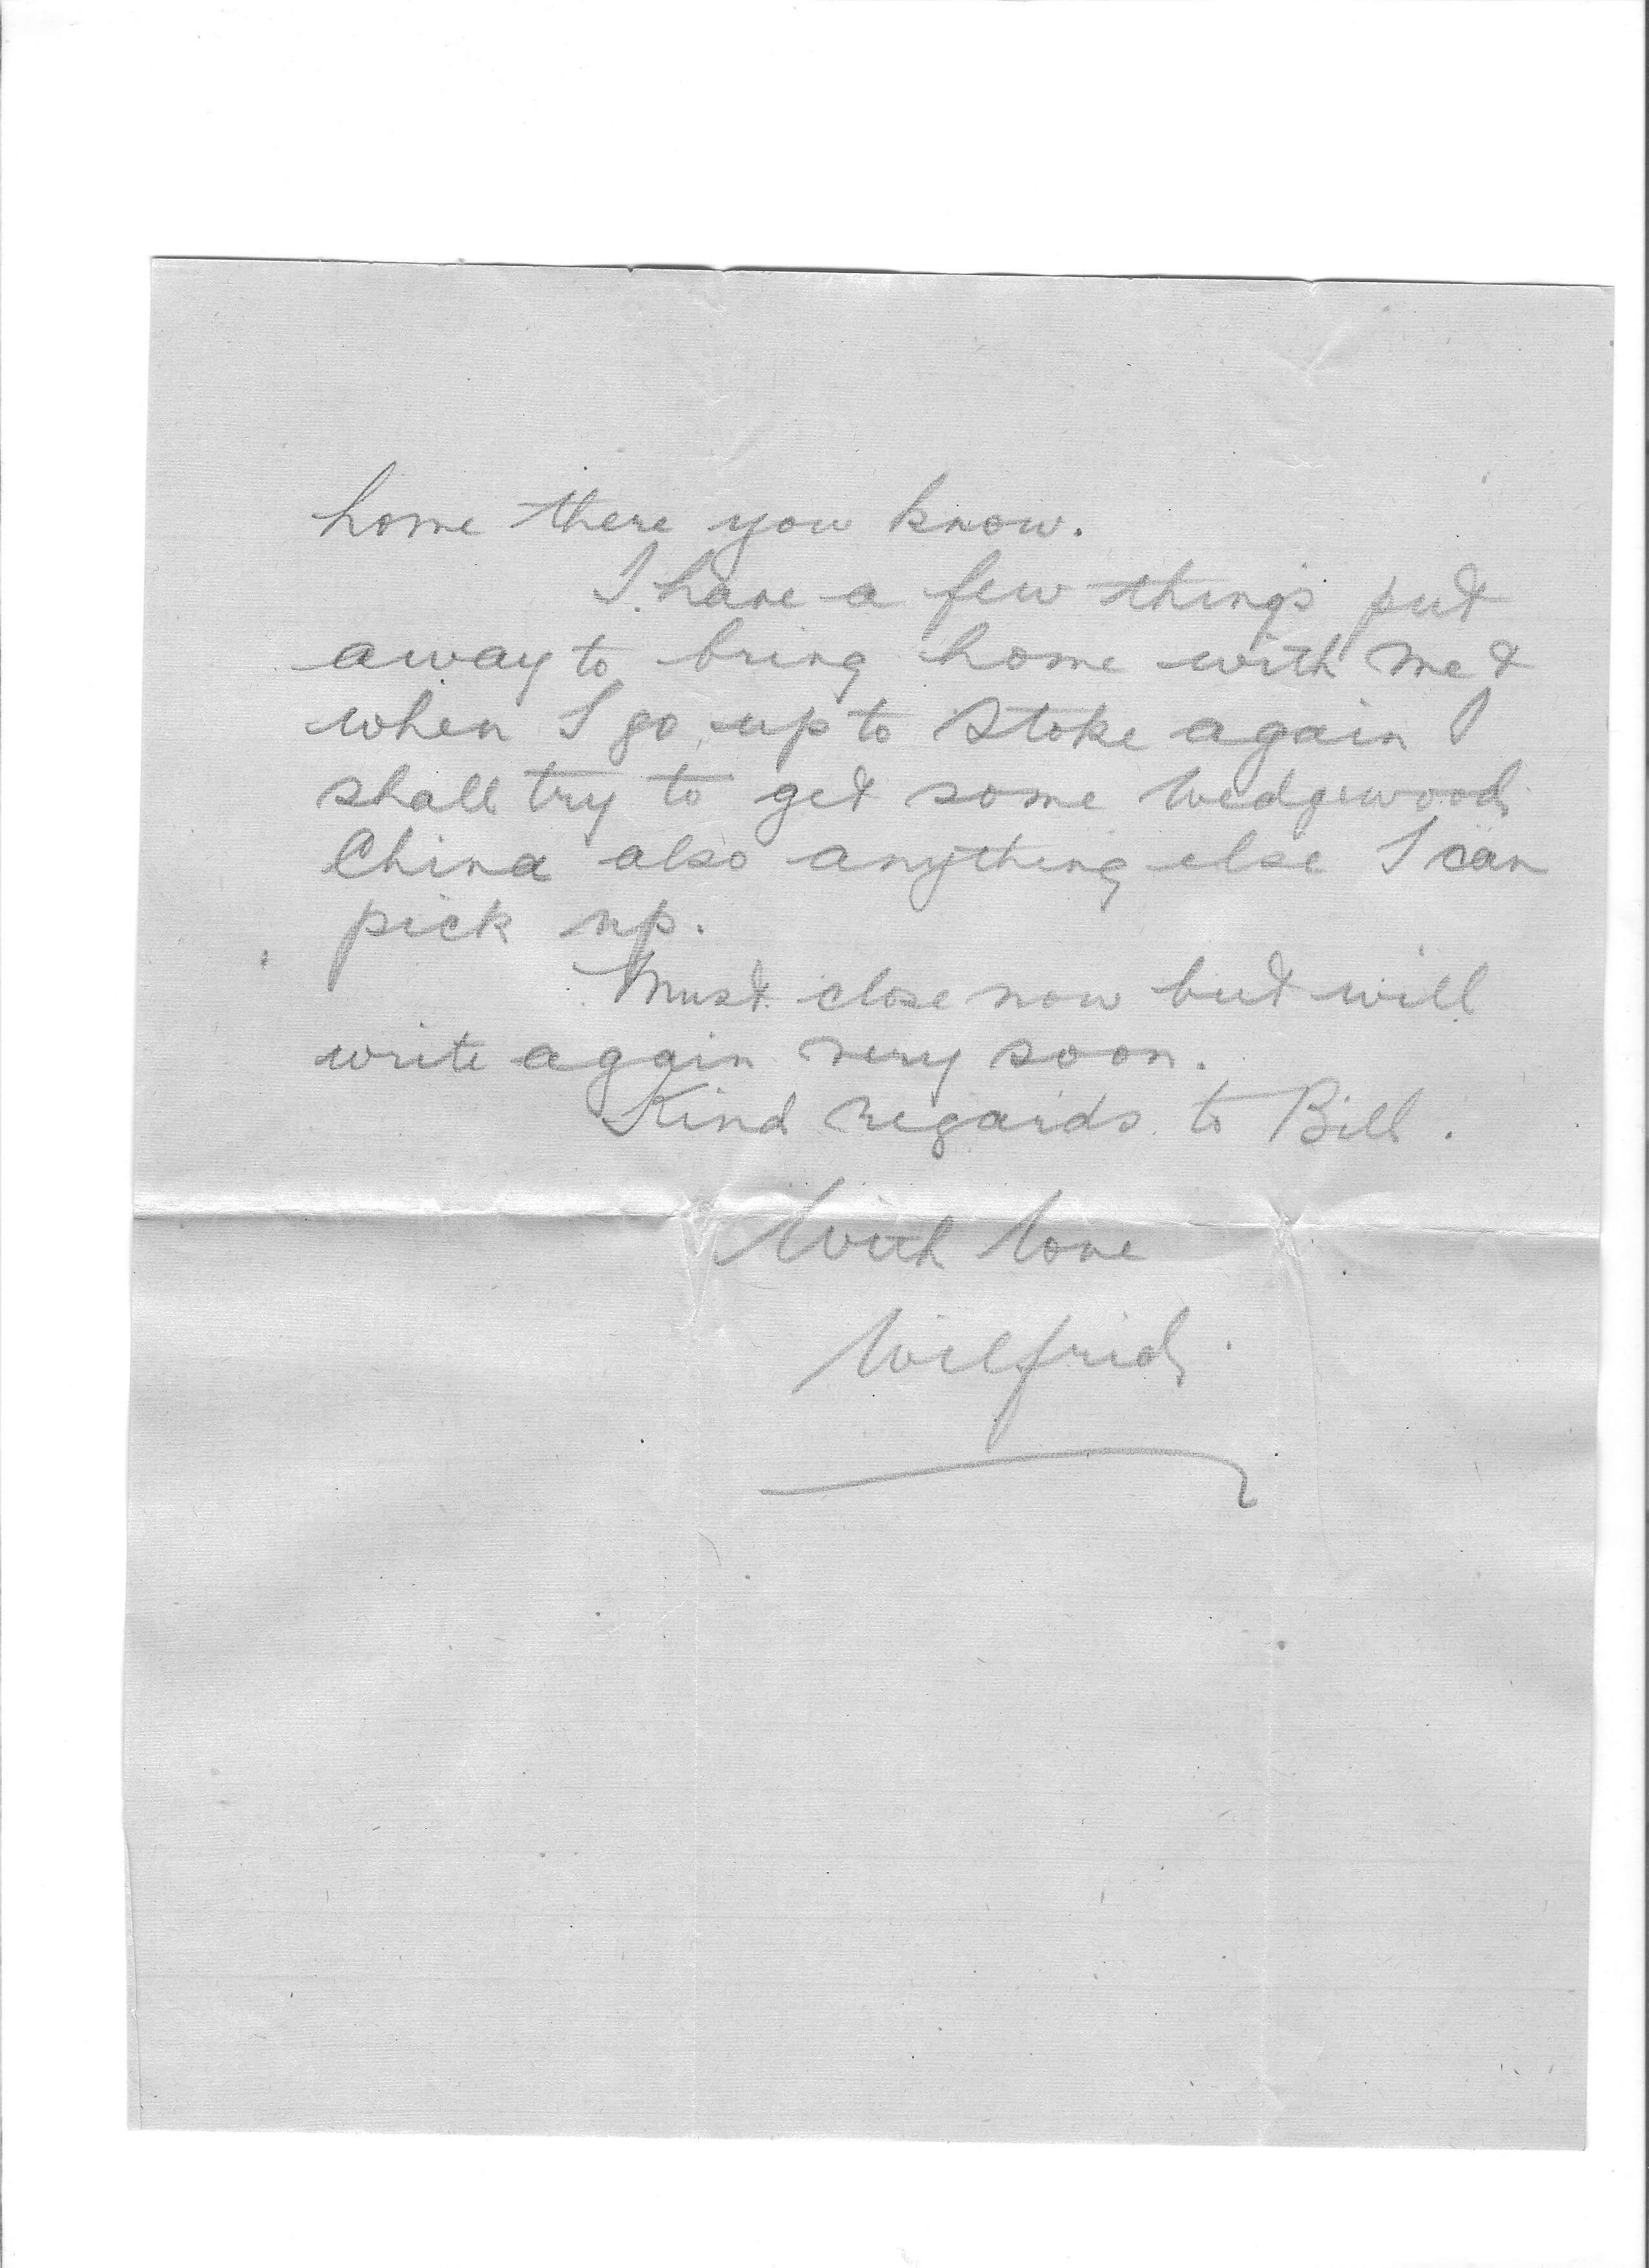 home there you know.
I have a few things put
away to bring home with me &
when I go up to Stoke again I
shall try to get some Wedgewood
China also anything else I can
pick up.
Must close now but will
write again very soon.
Kind regards to Bill.
With Love
Wilfrid